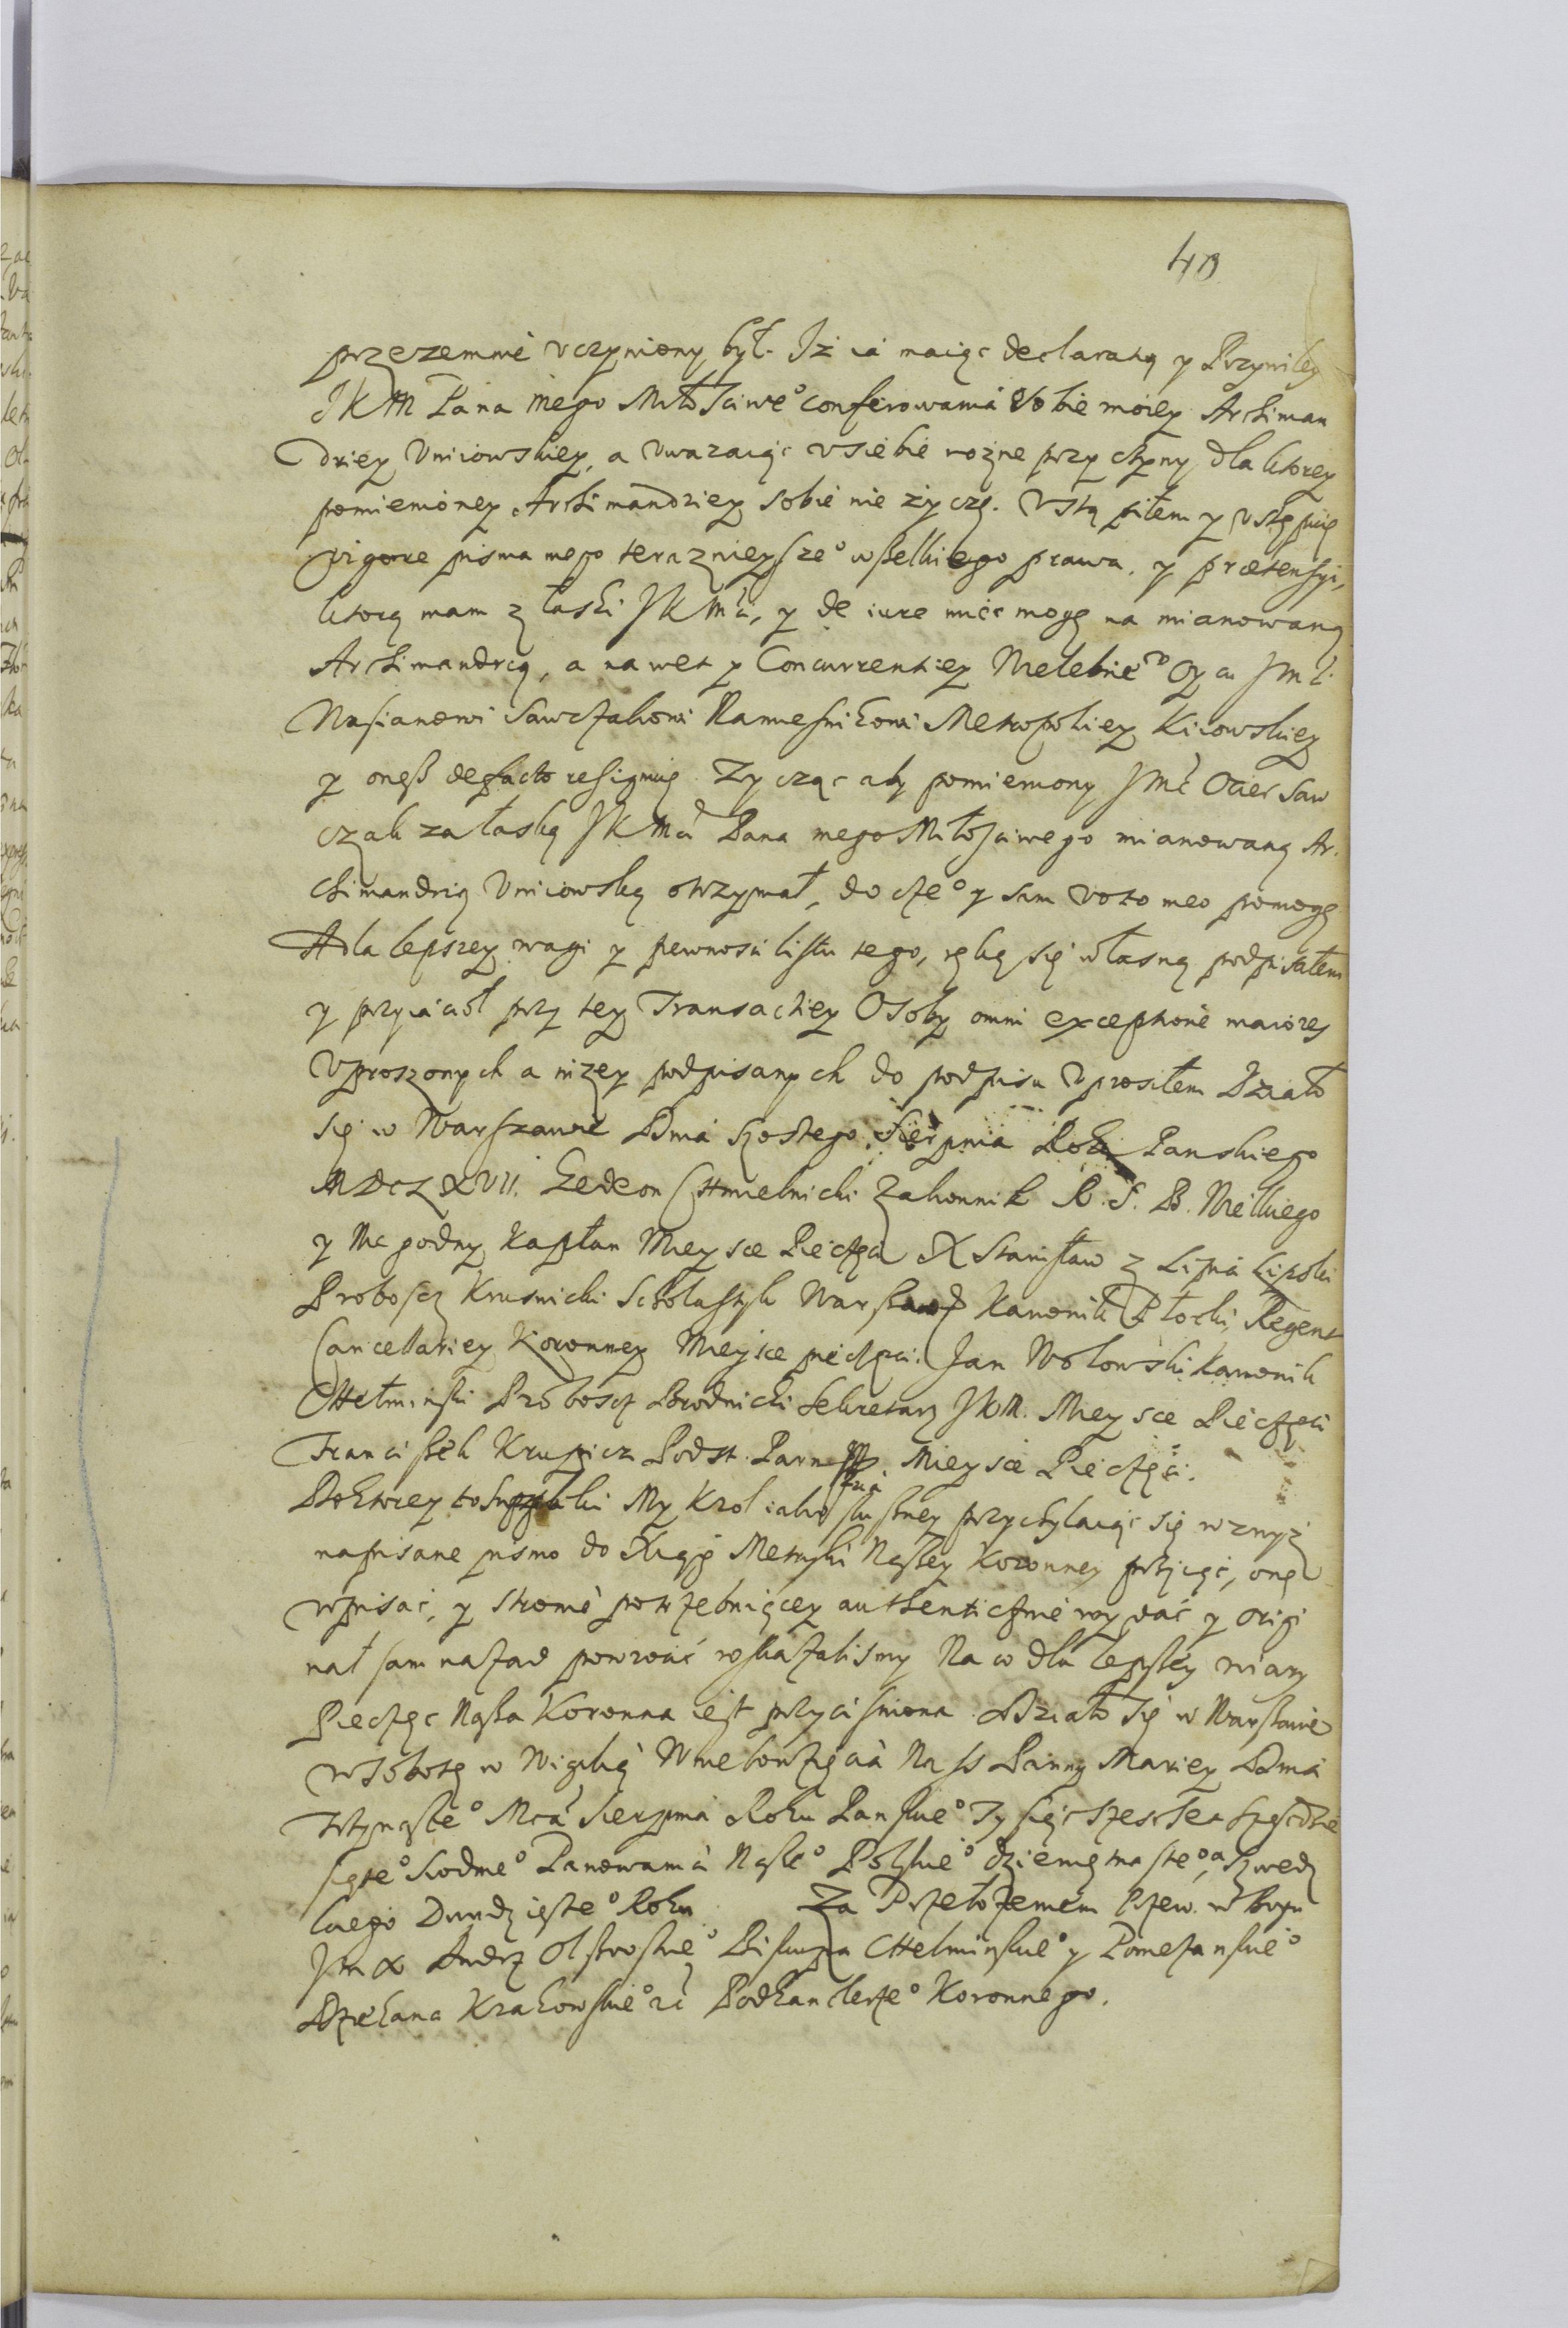 40
przezemnie vczyniony był. Iż ia maiąc declaratą y Przywiley
JKM Pana mego Miłosciwe° conferowania Sobie moiey Archiman
driey Vniowskiey, a vwazaiąc v siebie rożne przyczyny, dla ktorey
pomienioney Archimandriey sobie nie życzę. Vstąpiłem y vstępuię
vigore pisma mego teraznieysze° wszelkiego prawa, y praetensyi,
ktorą mam z łaski JKMci, y de iure mieć mogę na mianowaną
Archimandrią, a nawet y Concurrentiey Wielebne° Oyca Jmci
Sawczakowi Namiesnikowi Metropoliey Kiiowskiey
y onęß defacto resignuię. Zycząc aby pomieniony JMć Ociec Saw
czak za łaską JKMci Pana mego Miłosciwego mianowaną Ar
chimandrią Vniowską otrzymał, do cze° y sam voto meo pomogę
A dla lepszey wagi y pewnosci listu tego, ręką się własną podpisałem
y przyiacioł przy tey Transactiey Osoby omni exceptione maiores
Vproszonych a niżey podpisanych do podpisu vprosiłem Działo
się w Warszawie Dnia szostego Sierpnia Roku Panskiego
MDCLXVII. Gedeon Chmielnicki Zakonnik R. S. B. Wielkiego
y Niegodny Kapłan Mieysce Pieczęci X Stanisław z Lipia Lipski
Proboscz Krusnicki Scholastyk Warszaw Kanonik Płocki, Regent
Cancellariey Koronney Mieysce pieczęci. Jan Wołowski Kanonik
CHełminski Proboscz Brodnicki Sekretarz JKM. Mieysce Pieczęci
Franciszek Krupicz Podst. Parn Mieysce Pieczęci.
Do ktorey to My Krol iako słuszney przychylaiąc się wzwyż
napisane pismo do Xiąg Metryki Naszey Koronney przyiąć, one
wpisać, y stronie potrzebuiącey authenticznie wydać y origi
nał sam nazad powrocić roskazalismy Na co dla lepszey wiary
Pieczęć Nasza Koronna iest przycisniona. Działo się w Warszawie
w Sobotę w Wigilią Wniebowzięcia Nass Panny Mariey Dnia
Mca Sierpnia Roku Panskie° Tysiąc szescset szescdzie
siąte° siodme° Panowania Nasze° Polskie° dziewiętnaste°, a Szwedz
kiego Dwudzieste° Roku Za Przełożeniem Przew. w Bogu
Jm X Andrz Olszowskie° Biskupa CHelminskie° y Pomezanskie°
Dziekana Krakowskie° &c Podkanclerze° Koronnego.